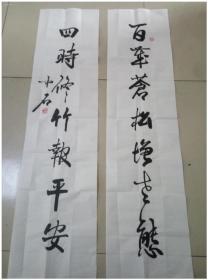 百年蒼松增老態
四時修竹報平安
小石